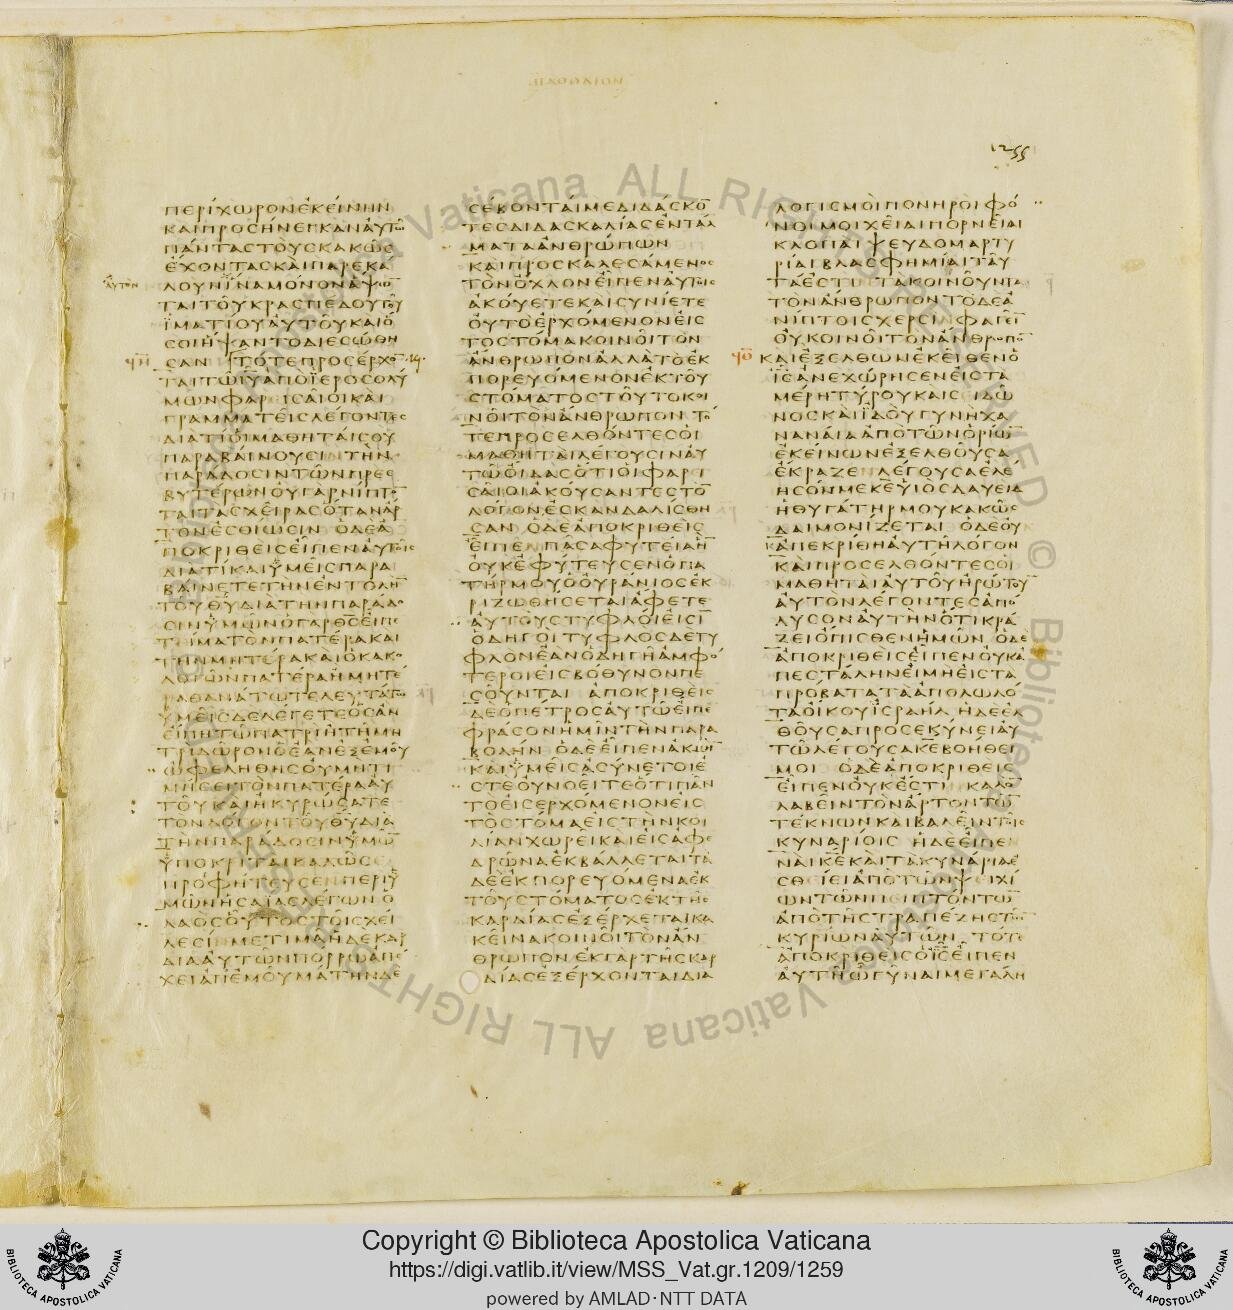 ΜΑΘΘΑΙΟΝ
1255
ΠΕΡΙΧΩΡΟΝΕΚΕΙΝΗΝ
ΚΑΙΠΡΟΣΗΝΕΓΚΑΝΑΥΤΩ
ΠΑΝΤΑΣΤΟΥΣΚΑΚΩΣ
ΕΧΟΝΤΑΣΚΑΙΠΑΡΕΚΑ
ΛΟΥΝΙΝΑΜΟΝΟΝΑΨΩ
ΑΥΤΟΝ
ΤΑΙΤΟΥΚΡΑΣΠΕΔΟΥΤΟΥ
ΙΜΑΤΙΟΥΑΥΤΟΥΚΑΙΟ
ΣΟΙΗΨΑΝΤΟΔΙΕΣΩΘΗ
ΣΑΝ ΤΟΤΕΠΡΟΣΕΡΧΟ
ΤΑΙΤΩΙΥΑΠΟΪΕΡΟΣΟΛΥ
ΜΩΝΦΑΡΙΣΑΙΟΙΚΑΙ
ΓΡΑΜΜΑΤΕΙΣΛΕΓΟΝΤΕΣ
ΔΙΑΤΙΟΙΜΑΘΗΤΑΙΣΟΥ
ΠΑΡΑΒΑΙΝΟΥΣΙΝΤΗΝ
ΠΑΡΑΔΟΣΙΝΤΩΝΠΡΕΣ
ΒΥΤΕΡΩΝΟΥΓΑΡΝΙΠΤΟ
ΤΑΙΤΑΣΧΕΙΡΑΣΟΤΑΝΑΡ
ΤΟΝΕΣΘΙΩΣΙΝ ΟΔΕΑ
ΠΟΚΡΙΘΕΙΣΕΙΠΕΝΑΥΤΟΙΣ
ΔΙΑΤΙΚΑΙΥΜΕΙΣΠΑΡΑ
ΒΑΙΝΕΤΕΤΗΝΕΝΤΟΛΗ
ΤΟΥΘΥΔΙΑΤΗΝΠΑΡΑΔΟ
ΣΙΝΥΜΩΝΟΓΑΡΘΣΕΙΠΕ
ΤΕΙΜΑΤΟΝΠΑΤΕΡΑΚΑΙ
ΤΗΝΜΗΤΕΡΑΚΑΙΟΚΑΚΟ
ΛΟΓΩΝΠΑΤΕΡΑΗΜΗΤΕ
ΡΑΘΑΝΑΤΩΤΕΛΕΥΤΑΤΩ
ΥΜΕΙΣΔΕΛΕΓΕΤΕΟΣΑΝ
ΕΙΠΗΤΩΠΑΤΡΙΗΤΗΜΗ
ΤΡΙΔΩΡΟΝΟΕΑΝΕΞΕΜΟΥ
ΩΦΕΛΗΘΗΣΟΥΜΗΤΙ
ΜΗΣΕΙΤΟΝΠΑΤΕΡΑΑΥ
ΤΟΥΚΑΙΗΚΥΡΩΣΑΤΕ
ΤΟΝΛΟΓΟΝΤΟΥΘΥΔΙΑ
ΤΗΝΠΑΡΑΔΟΣΙΝΥΜΩ
ΥΠΟΚΡΙΤΑΙΚΑΛΩΣΕ
ΠΡΟΦΗΤΕΥΣΕΝΠΕΡΙΥ
ΜΩΝΗΣΑΙΑΣΛΕΓΩΝΟ
ΛΑΟΣΟΥΤΟΣΤΟΙΣΧΕΙ
ΛΕΣΙΝΜΕΤΙΜΑΗΔΕΚΑΡ
ΔΙΑΑΥΤΩΝΠΟΡΡΩΑΠΕ
ΧΕΙΑΠΕΜΟΥΜΑΤΗΝΔΕ
ΣΕΒΟΝΤΑΙΜΕΔΙΔΑΣΚΟ
ΤΕΣΔΙΔΑΣΚΑΛΙΑΣΕΝΤΑΛ
ΜΑΤΑΑΝΘΡΩΠΩΝ
ΚΑΙΠΡΟΣΚΑΛΕΣΑΜΕΝΟΣ
ΤΟΝΟΧΛΟΝΕΙΠΕΝΑΥΤΟΙΣ
ΑΚΟΥΕΤΕΚΑΙΣΥΝΙΕΤΕ
ΟΥΤΟΕΡΧΟΜΕΝΟΝΕΙΣ
ΤΟΣΤΟΜΑΚΟΙΝΟΙΤΟΝ
ΑΝΘΡΩΠΟΝΑΛΛΑΤΟΕΚ
ΠΟΡΕΥΟΜΕΝΟΝΕΚΤΟΥ
ΣΤΟΜΑΤΟΣΤΟΥΤΟΚΟΙ
ΝΟΙΤΟΝΑΝΘΡΩΠΟΝΤΟ
ΤΕΠΡΟΣΕΛΘΟΝΤΕΣΟΙ
ΜΑΘΗΤΑΙΛΕΓΟΥΣΙΝΑΥ
ΤΩΟΙΔΑΣΟΤΙΟΙΦΑΡΙ
ΣΑΙΟΙΑΚΟΥΣΑΝΤΕΣΤΟ
ΛΟΓΟΝΕΣΚΑΝΔΑΛΙΣΘΗ
ΣΑΝ ΟΔΕΑΠΟΚΡΙΘΕΙΣ
ΕΙΠΕΝΠΑΣΑΦΥΤΕΙΑΗ
ΟΥΚΕΦΥΤΕΥΣΕΝΟΠΑ
ΤΗΡΜΟΥΟΟΥΡΑΝΙΟΣΕΚ
ΡΙΖΩΘΗΣΕΤΑΙΑΦΕΤΕ
ΑΥΤΟΥΣΤΥΦΛΟΙΕΙΣΙ
ΟΔΗΓΟΙΤΥΦΛΟΣΔΕΤΥ
ΦΛΟΝΕΑΝΟΔΗΓΗΑΜΦΟ
ΤΕΡΟΙΕΙΣΒΟΘΥΝΟΝΠΕ
ΣΟΥΝΤΑΙ ΑΠΟΚΡΙΘΕΙΣ
ΔΕΟΠΕΤΡΟΣΑΥΤΩΕΙΠΕ
ΦΡΑΣΟΝΗΜΙΝΤΗΝΠΑΡΑ
ΒΟΛΗΝ ΟΔΕΕΙΠΕΝΑΚΜΗ
ΚΑΙΥΜΕΙΣΑΣΥΝΕΤΟΙΕ
ΣΤΕΟΥΝΟΕΙΤΕΟΤΙΠΑΝ
ΤΟΕΙΣΕΡΧΟΜΕΝΟΝΕΙΣ
ΤΟΣΤΟΜΑΕΙΣΤΗΝΚΟΙ
ΛΙΑΝΧΩΡΕΙΚΑΙΕΙΣΑΦΕ
ΔΡΩΝΑΕΚΒΑΛΛΕΤΑΙΤΑ
ΔΕΕΚΠΟΡΕΥΟΜΕΝΑΕΚ
ΤΟΥΣΤΟΜΑΤΟΣΕΚΤΗΣ
ΚΑΡΔΙΑΣΕΞΕΡΧΕΤΑΙΚΑ
ΚΕΙΝΑΚΟΙΝΟΙΤΟΝΑΝ
ΘΡΩΠΟΝΕΚΓΑΡΤΗΣΚΑΡ
ΔΙΑΣΕΞΕΡΧΟΝΤΑΙΔΙΑ
ΛΟΓΙΣΜΟΙΠΟΝΗΡΟΙΦΟ
ΝΟΙΜΟΙΧΕΙΑΙΠΟΡΝΕΙΑΙ
ΚΛΟΠΑΙΨΕΥΔΟΜΑΡΤΥ
ΡΙΑΙΒΛΑΣΦΗΜΙΑΙΤΑΥ
ΤΑΕΣΤΙΝΤΑΚΟΙΝΟΥΝΤΑ
ΤΟΝΑΝΘΡΩΠΟΝΤΟΔΕΑ
ΝΙΠΤΟΙΣΧΕΡΣΙΝΦΑΓΕΙ
ΟΥΚΟΙΝΟΙΤΟΝΑΝΘΡΩΠΟ
ΚΑΙΕΞΕΛΘΩΝΕΚΕΙΘΕΝΟ
ΙΣΑΝΕΧΩΡΗΣΕΝΕΙΣΤΑ
ΜΕΡΗΤΥΡΟΥΚΑΙΣΙΔΩ
ΝΟΣΚΑΙΙΔΟΥΓΥΝΗΧΑ
ΝΑΝΑΙΑΑΠΟΤΩΝΟΡΙΩ
ΕΚΕΙΝΩΝΕΞΕΛΘΟΥΣΑ
ΕΚΡΑΖΕΝΛΕΓΟΥΣΑΕΛΕ
ΗΣΟΝΜΕΚΕΥΙΟΣΔΑΥΕΙΔ
ΗΘΥΓΑΤΗΡΜΟΥΚΑΚΩΣ
ΔΑΙΜΟΝΙΖΕΤΑΙ ΟΔΕΟΥ
ΚΑΠΕΚΡΙΘΗΑΥΤΗΛΟΓΟΝ
ΚΑΙΠΡΟΣΕΛΘΟΝΤΕΣΟΙ
ΜΑΘΗΤΑΙΑΥΤΟΥΗΡΩΤΟΥ
ΑΥΤΟΝΛΕΓΟΝΤΕΣΑΠΟ
ΛΥΣΟΝΑΥΤΗΝΟΤΙΚΡΑ
ΖΕΙΟΠΙΣΘΕΝΗΜΩΝ ΟΔΕ
ΑΠΟΚΡΙΘΕΙΣΕΙΠΕΝΟΥΚΑ
ΠΕΣΤΑΛΗΝΕΙΜΗΕΙΣΤΑ
ΠΡΟΒΑΤΑΤΑΑΠΟΛΩΛΟ
ΤΑΟΙΚΟΥΙΣΡΑΗΛ ΗΔΕΕΛ
ΘΟΥΣΑΠΡΟΣΕΚΥΝΕΙΑΥ
ΤΩΛΕΓΟΥΣΑΚΕΒΟΗΘΕΙ
ΜΟΙ ΟΔΕΑΠΟΚΡΙΘΕΙΣ
ΕΙΠΕΝΟΥΚΕΣΤΙΝΚΑΛΟ
ΛΑΒΕΙΝΤΟΝΑΡΤΟΝΤΩ
ΤΕΚΝΩΝΚΑΙΒΑΛΕΙΝΤΟΙΣ
ΚΥΝΑΡΙΟΙΣ ΗΔΕΕΙΠΕΝ
ΝΑΙΚΕΚΑΙΤΑΚΥΝΑΡΙΑΕ
ΣΘΙΕΙΑΠΟΤΩΝΨΕΙΧΙ
ΩΝΤΩΝΠΕΙΠΤΟΝΤΩ
ΑΠΟΤΗΣΤΡΑΠΕΖΗΣΤΩ
ΚΥΡΙΩΝΑΥΤΩΝ ΤΟΤΕ
ΑΠΟΚΡΙΘΕΙΣΟΙΣΕΙΠΕΝ
ΑΥΤΗΩΓΥΝΑΙΜΕΓΑΛΗ
Copyright © Biblioteca Apostolica Vaticana
https://digi.vatlib.it/view/MSS_Vat.gr.1209/1259
powered by AMLAD·NTT DATA
BIBLIOTECA APOSTOLICA VATICANA
BIBLIOTECA APOSTOLICA VATICANA